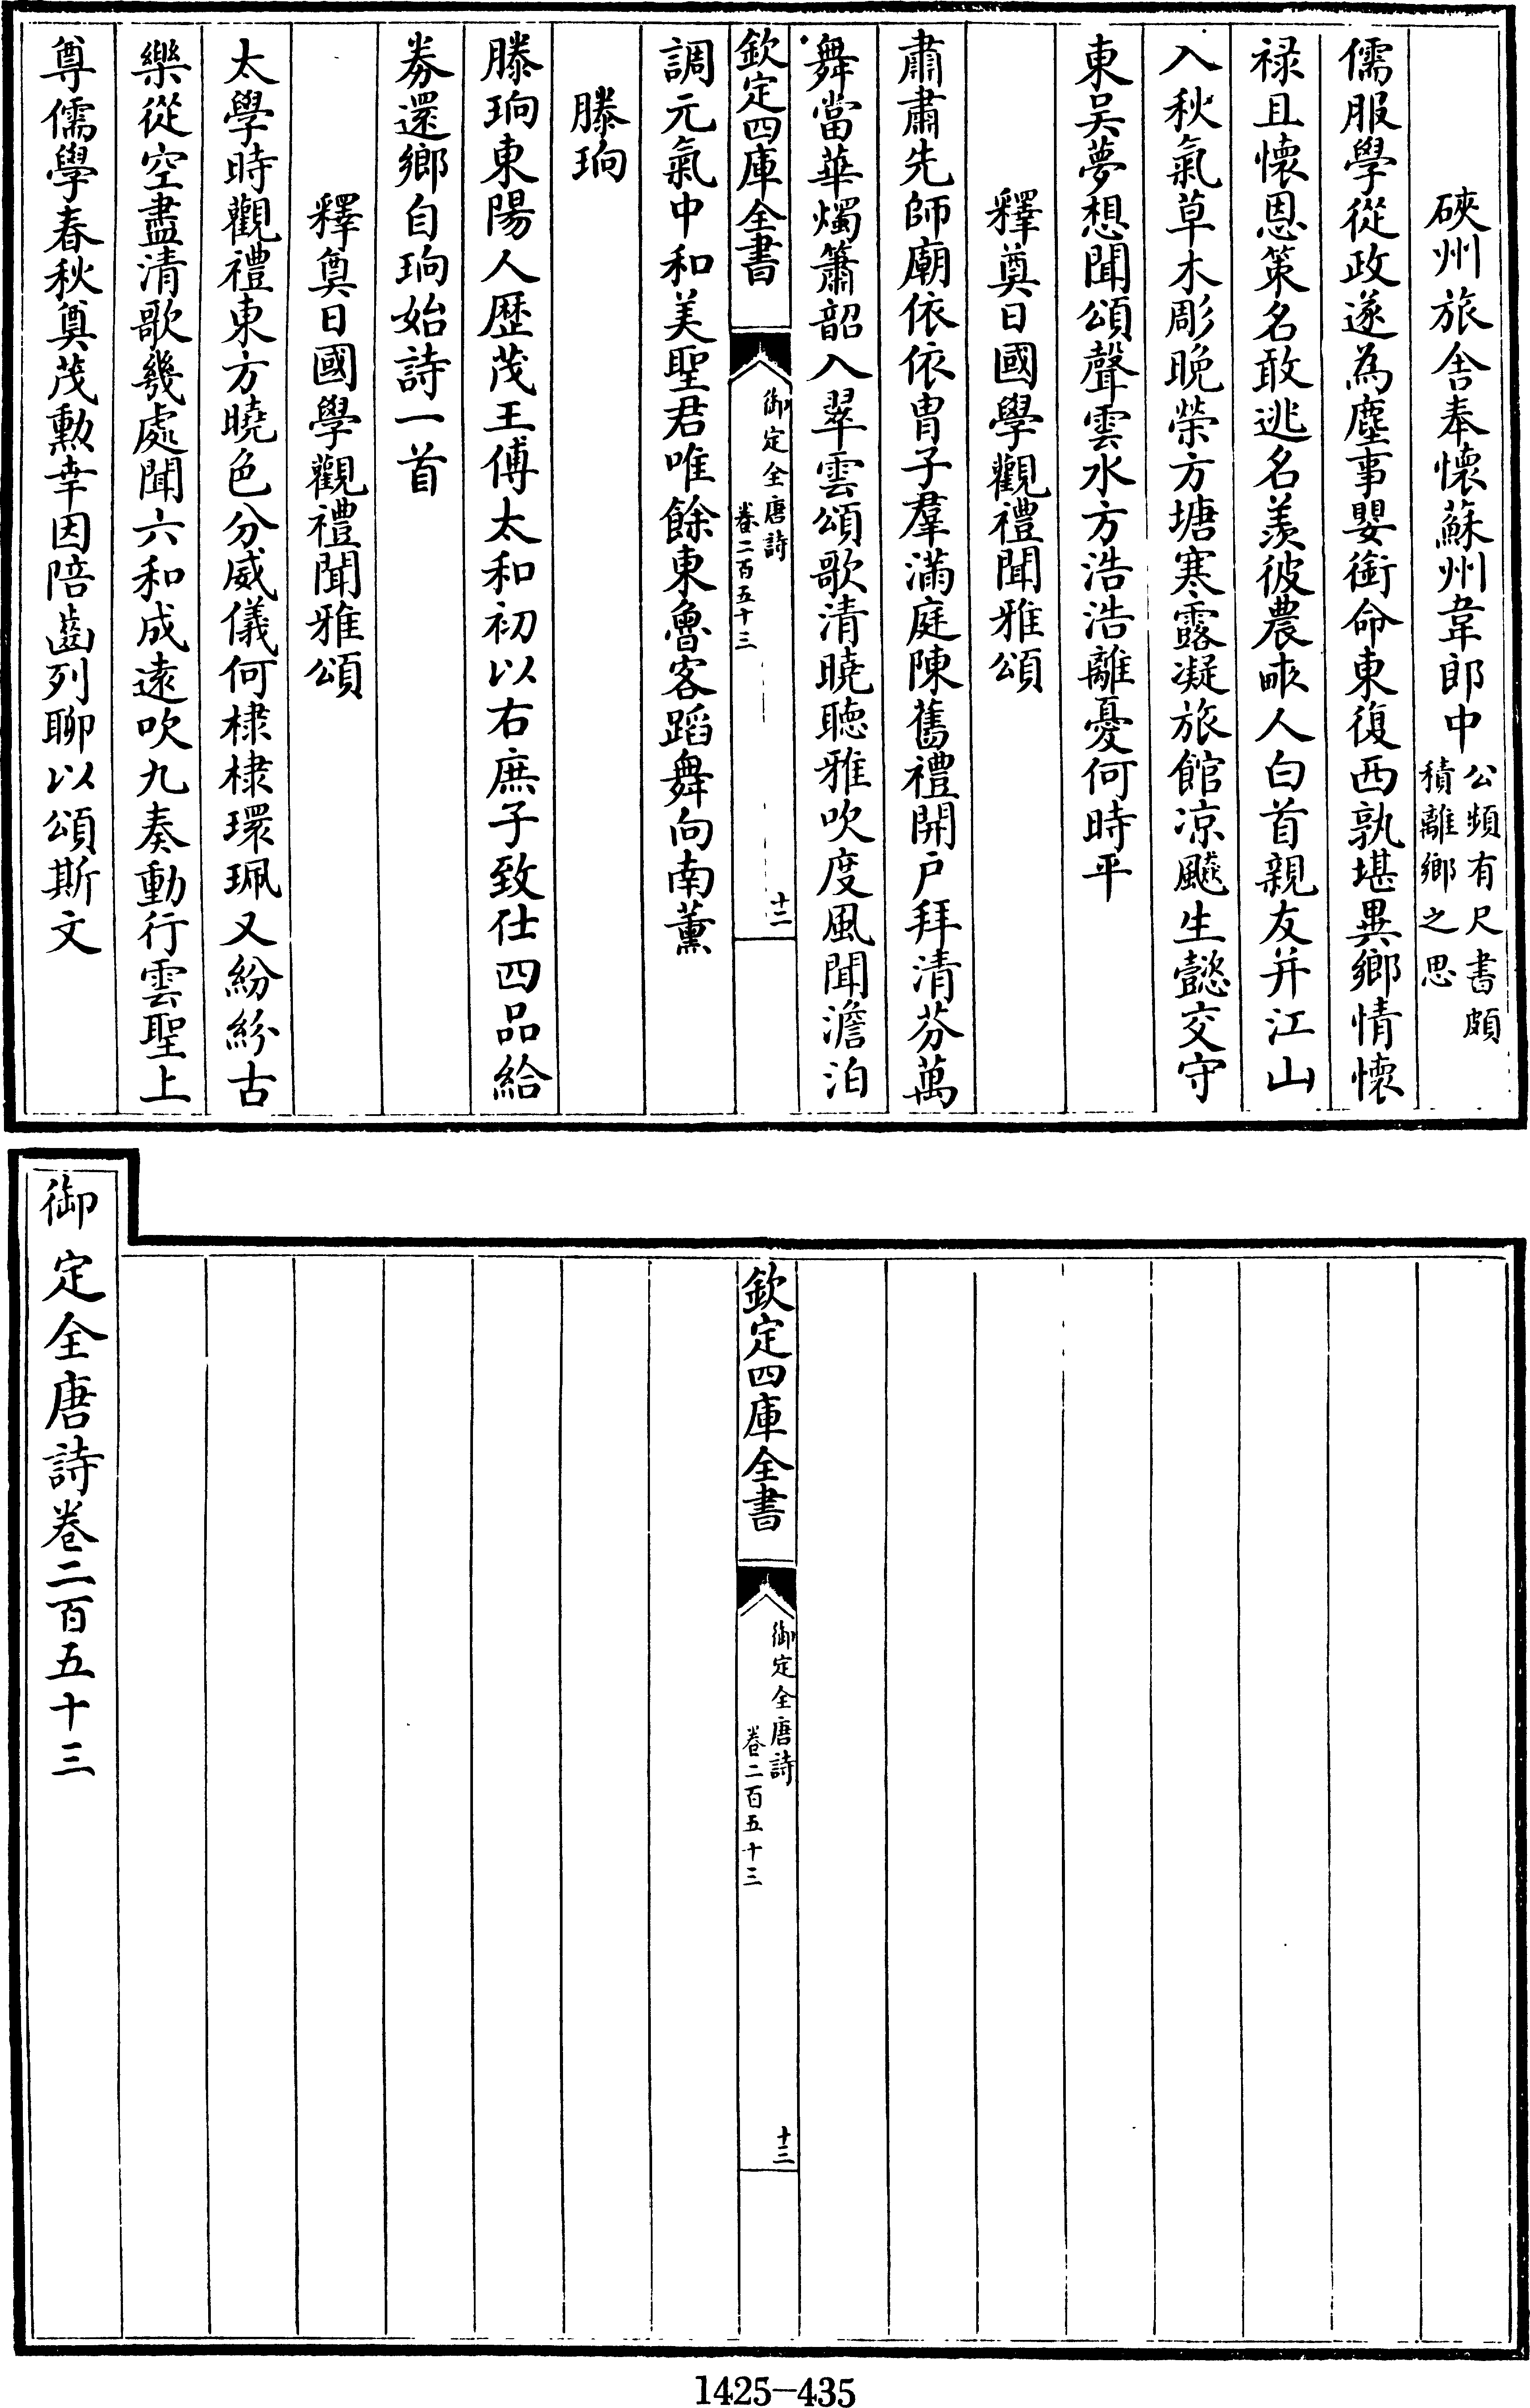 硤州旅舍奉懷蘇州韋郎中公頻有尺書頗積離鄉之思
儒服學從政遂為塵事嬰銜命東復西孰堪異鄉情懷
禄且懷恩策名敢逃名羡彼農畝人白首親友并江山
入秋氣草木彫晚榮方塘寒露凝旅館凉飈生懿交守
東吴夢想聞頌聲雲水方浩浩離憂何時平
釋奠日國學觀禮聞雅頌
肅肅先師廟依依胄子羣滿庭陳舊禮開户拜清芬萬
舞當華燭簫韶入翠雲頌歌清曉聽雅吹度風聞澹泊
欽定四庫全書
御定全唐詩
卷二百五十三
十二
調元氣中和美聖君唯餘東魯客蹈舞向南薰
滕珦
滕珦東陽人歷茂王傅太和初以右庶子致仕四品給
券還鄉自珦始詩一首
釋奠日國學觀禮聞雅頌
太學時觀禮東方曉色分威儀何棣棣環珮又紛紛古
樂從空盡清歌幾處聞六和成遠吹九奏動行雲聖上
尊儒學春秋奠茂勲幸因陪齒列聊以頌斯文
欽定四庫全書
御定全唐詩
卷二百五十三
十三
御定全唐詩卷二百五十三
1425-435